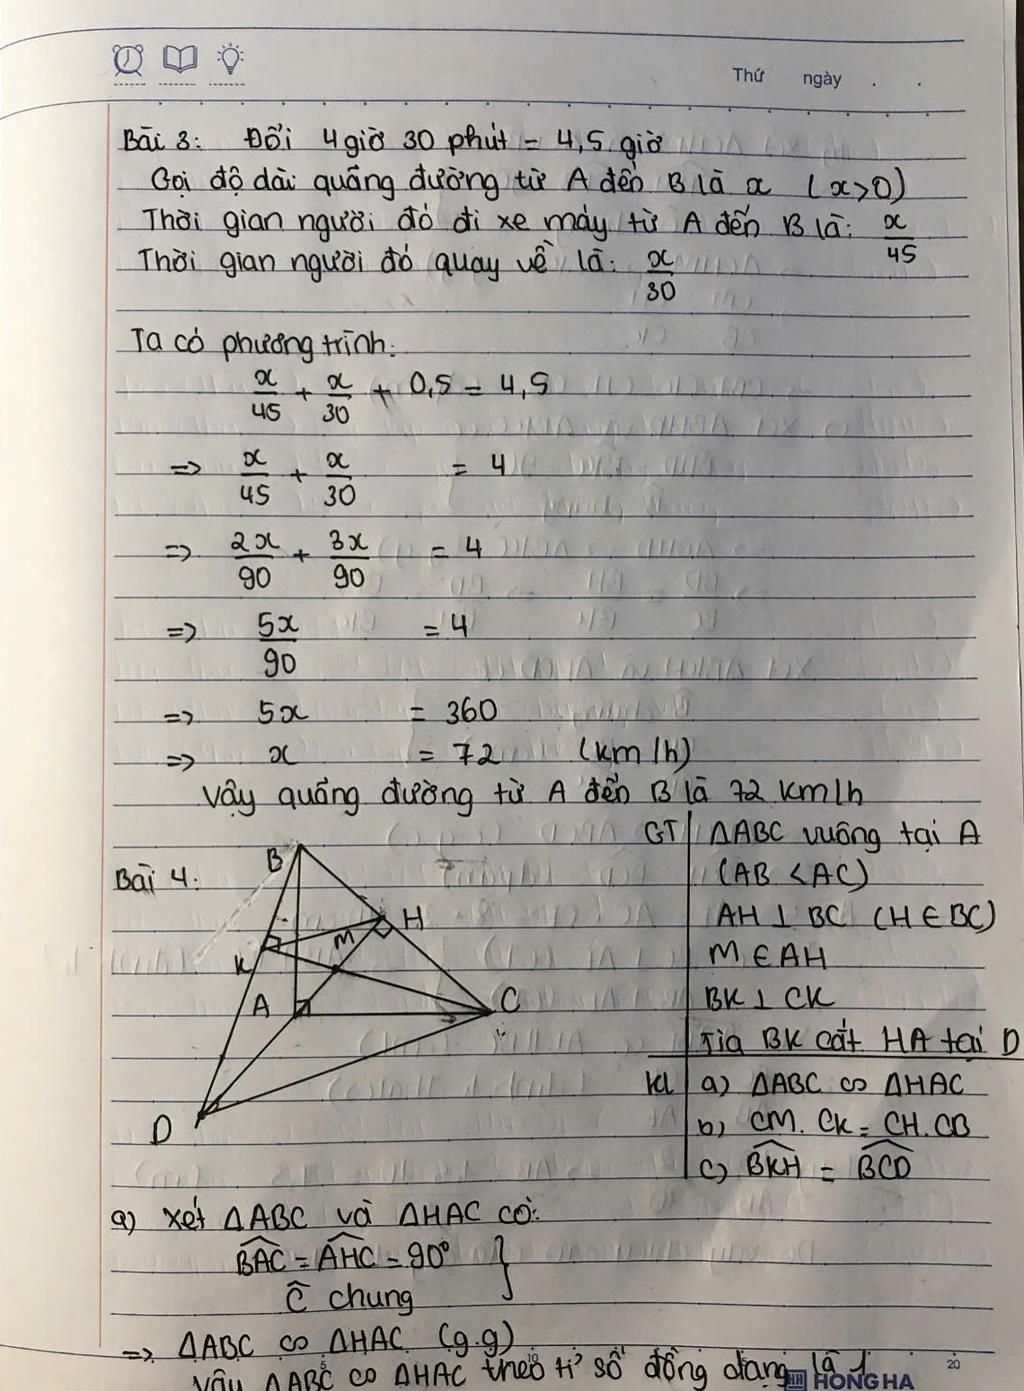 Thứ ngày . .
Bài 3: Đổi 4 giờ 30 phút = 4,5 giờ
Gọi độ dài quãng đường từ A đến B là x (x>0)
Thời gian người đó đi xe máy từ A đến B là: x/45
Thời gian người đó quay về là: x/30
Ta có phương trình:
x/45 + x/30 + 0,5 = 4,5
=> x/45 + x/30 = 4
=> 2x/90 + 3x/90 = 4
=> 5x/90 = 4
=> 5x = 360
=> x = 72 (km/h)
Vậy quãng đường từ A đến B là 72 km/h
Bài 4:
B
H
M
K
A
C
D
GT ΔABC vuông tại A
(AB < AC)
AH ⊥ BC (H ∈ BC)
M ∈ AH
BK ⊥ CK
Tia BK cắt HA tại D
KL a) ΔABC ∽ ΔHAC
b) CM. CK = CH. CB
c) \widehat{BKH} = \widehat{BCD}
a) Xét ΔABC và ΔHAC có:
\widehat{BAC} = \widehat{AHC} = 90° }
\widehat{C} chung
=> ΔABC ∽ ΔHAC (g.g)
Vậy ΔABC ∽ ΔHAC theo tỉ số đồng dạng là 1
HONG HA
20